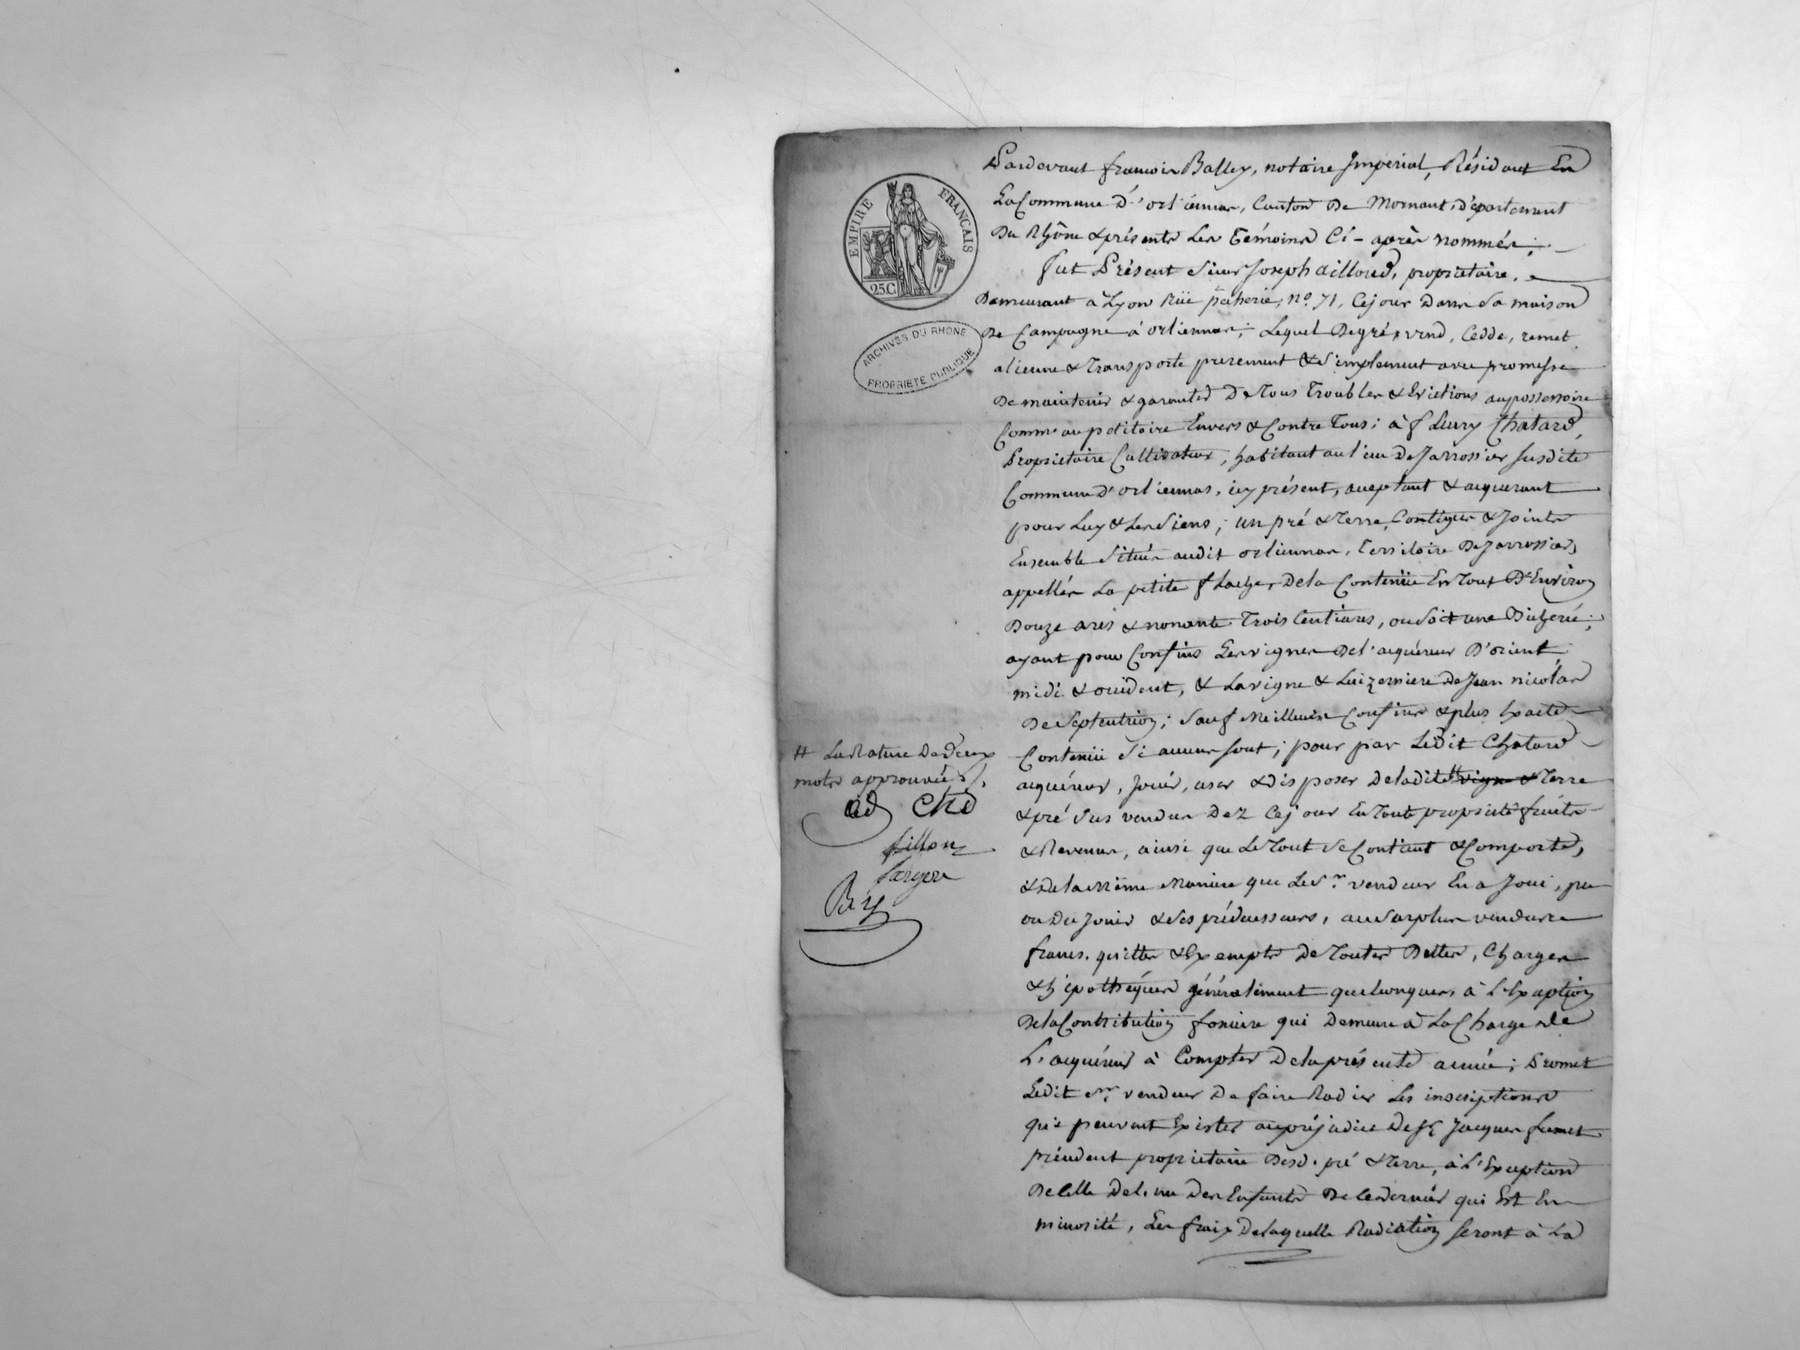 EMPIRE FRANÇAIS
25C
ARCHIVES DU RHONE
PROPRIETE PUBLIQUE
Pardevant françois Balley, notaire Impérial, Résidant En
La Commune d'orliénnas, Canton De Mornant, département
Du Rhône & présents Les Témoins Ci-après nommés;
fut Présent Sieur Joseph ailloud, propriétaire,
Demeurant à Lyon Rüe pécherie, n.o 71, Cejour dans Sa maison
De Campagne à orliennas; Lequel De gré, vend, Cedde, remet
alienne & Transporte purement & Simplement avec promesse
De maintenir & garantir De Tous Troubles & Evictions au possessoire
Comm' au petitoire Envers & Contre Tous; à fleury Chatard,
Propriétaire Cultivateur, habitant au lieu De Jarrossier susdite
Commune d'orliennas, icy présent, acceptant & acquerant
pour Luy & Les Siens; un pré & Terre, Contigus & Joints
Ensemble Situés audit orliennas, Territoire De Jarrossier,
appellés La petite flache, De la Contenüe En Tout D'Environ
Douze ares & nonante Trois Centiares, ou Soit une Bicherée;
ayant pour Confins Les vignes De l'acquéreur D'orient
midi & occident, & La vigne & Luizerniere De Jean nicolas
De Septentrion; Sauf Meilleurs Confins & plus Exacte
Contenüe Si aucuns sont; pour par Ledit Chatard
acquéreur, Jouir, user & disposer De ladite # vigne & Terre
& pré Sus vendus Dez Cejour En Toute propriété fruits
& Revenus, ainsi que Le Tout Se Contient & Comporte,
& De la Même Maniere que Le S.r vendeur En a Joui, pu
ou Du Jouir & Ses prédecesseurs, au Surplus vendus
francs, quittes & Exempts De Toutes Dettes, Charges
& hipothéques généralement quelconques à L'Exception
De la Contribution fonciere qui Demeure à La Charge De
L'acquéreur à Compter De la présente année; Promet
Ledit S.r vendeur De faire Radier Les inscriptions
qui peuvent Exister au préjudice De Jacques fumet
précédent propriétaire Desd. pré & Terre, à L'Exception
De Celle De L'un Des Enfants De Ce dernier qui Est En
minorité, Les fraix De laquelle Radiation seront à La
# La Rature De Deux
mots approuvée
ad Chd
pillon
Bey